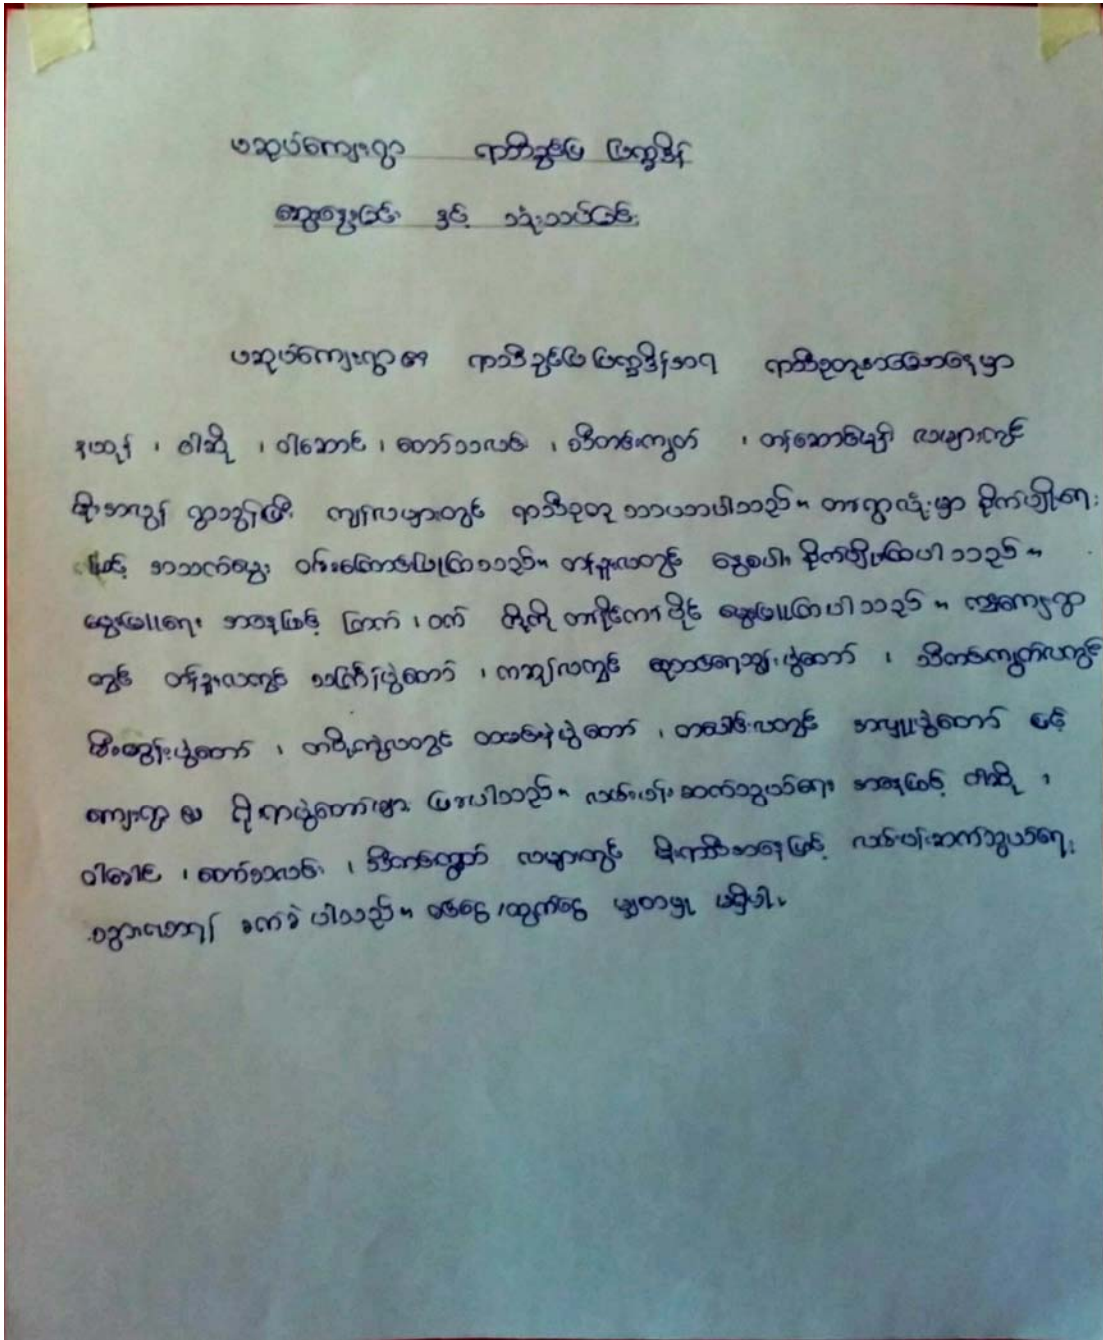 ဖဆုပ်ကျေးရွာ ရာသီခွင်ပြ ပြက္ခဒိန်
ဆွေးနွေးခြင်း နှင့် သုံးသပ်ခြင်း
ဖဆုပ်ကျေးရွာ၏ ရာသီခွင်ပြပြက္ခဒိန်အရ ရာသီဥတုအခြေအနေမှာ
နယုန် ၊ ဝါဆို ၊ ဝါခေါင် ၊ တော်သလင်း ၊ သီတင်းကျွတ် ၊ တန်ဆောင်မုန်း လများတွင်
မိုးအလွန် ရွာသွန်းပြီး ကျန်လများတွင် ရာသီဥတု သာယာပါသည်။ တစ်ရွာလုံးမှာ စိုက်ပျိုးရေး
ဖြင့် အသက်မွေး ဝမ်းကြောင်းပြုကြသည်။ တန်ခူးလတွင် နွေစပါး စိုက်ပျိုးကြပါသည်။
မွေးမြူရေး အနေဖြင့် ကြက် ၊ ဝက် တို့ကို တစ်နိုင်တစ်ပိုင် မွေးမြူကြပါသည်။ ကျေးရွာ
တွင် တန်ခူးလတွင် သင်္ကြန်ပွဲတော် ၊ ကဆုန်လတွင် ညောင်ရေသွန်းပွဲတော် ၊ သီတင်းကျွတ်လတွင်
မီးထွန်းပွဲတော် ၊ တပို့တွဲလတွင် ထမနဲပွဲတော် ၊ တပေါင်းလတွင် အလှူပွဲတော် နှင့်
ကျေးရွာ ရိုးရာပွဲတော်များ ပါသည်။ လမ်းပန်းဆက်သွယ်ရေး အနေဖြင့် ဝါဆို ၊
ဝါခေါင် ၊ တော်သလင်း ၊ သီတင်းကျွတ် လများတွင် မိုးရာသီအနေဖြင့် လမ်းပန်းဆက်သွယ်ရေး
ခက်ခဲ ပါသည်။ ဝင်ငွေ ၊ ထွက်ငွေ မျှတမှု မရှိပါ။